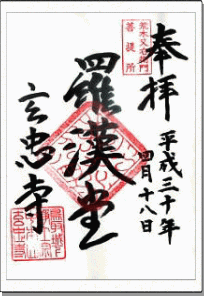 奉拝
平成三十年
四月十八日
荒木又右衛門
菩提所
羅漢堂
玄忠寺